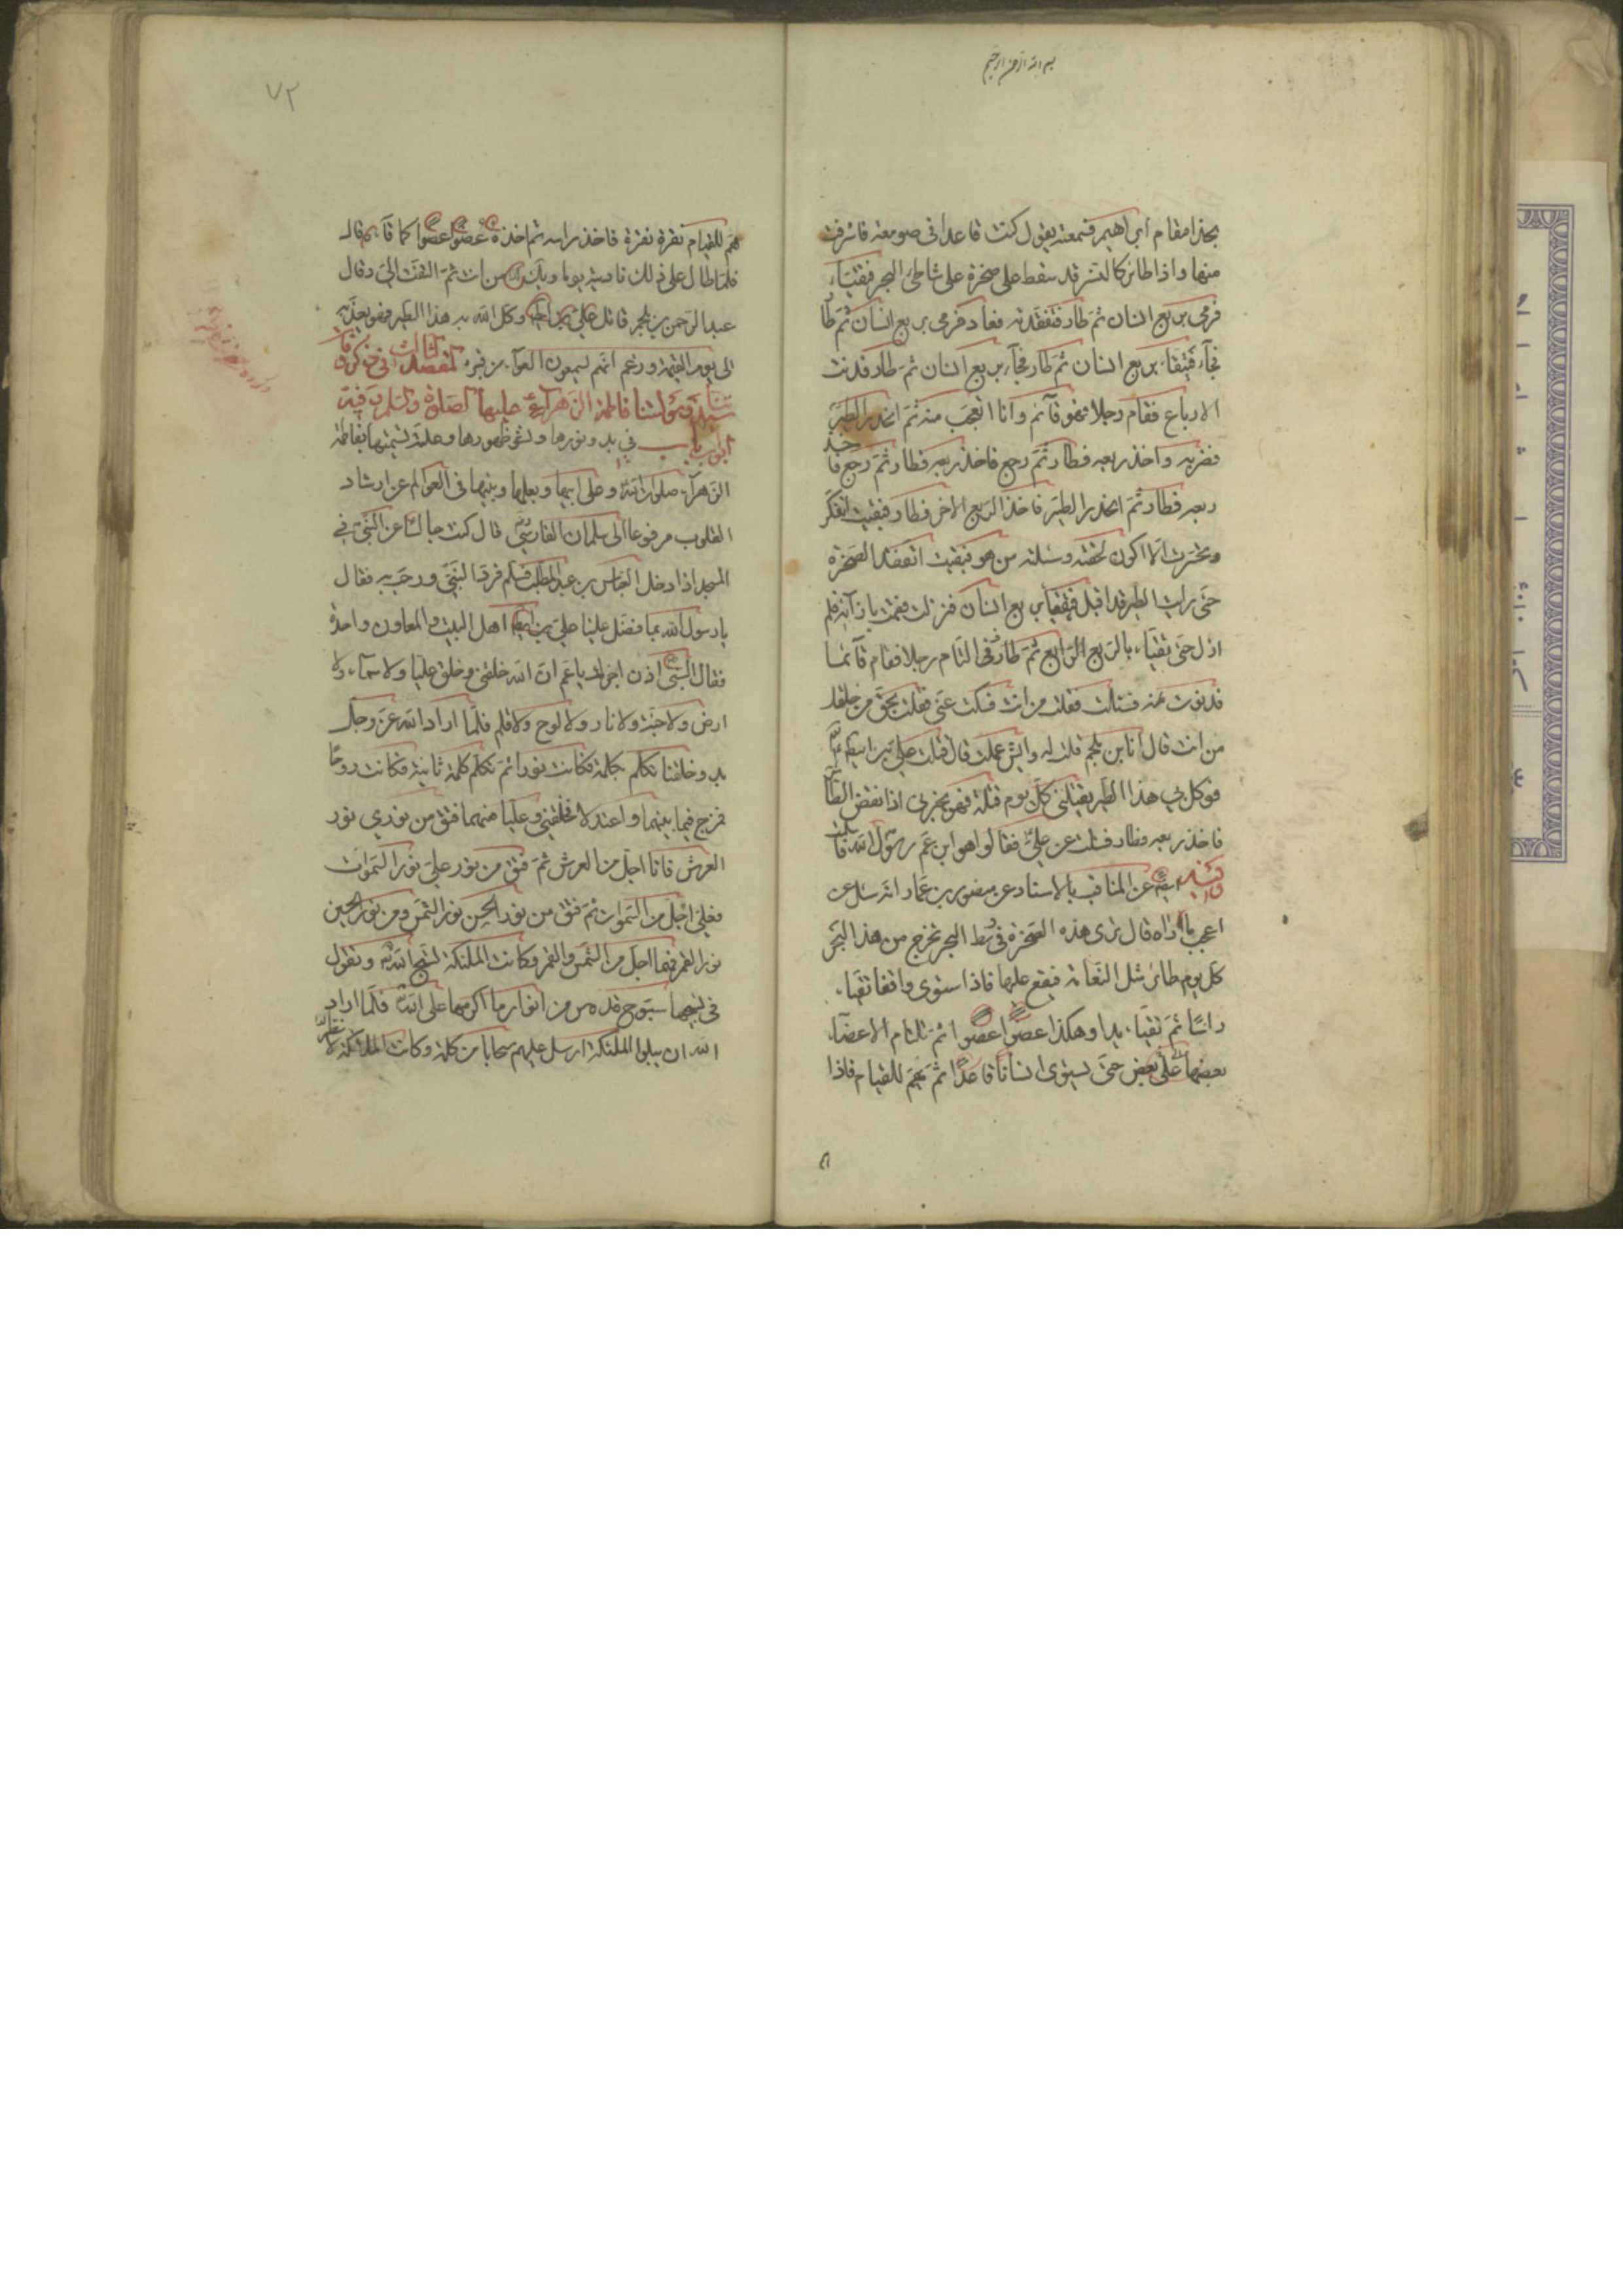 بسم الله الرحمن الرحيم
بحذا مقام ابراهيم فسمعته يقول كنت قاعدا فى صومعة فاشرفت
منها واذا طائر كالنسر قد سقط على صخرة على شاطئ البحر فتقيا،
فرمى بربع انسان ثم طار فتفقدته فعاد فرمى بربع انسان ثم طا
فجآء فتقيا، بربع انسان ثم طار فجآء بربع انسان ثم طار فدنت
الارباع فقام رجلا فهو قآئم وانا اتعجب منه ثم انحدر الطير
فضربه واخذ ربعه فطار ثم رجع فاخذ ربعه فطار ثم رجع فاخذ
ربعه فطار ثم انحدر الطير فاخذ الربع الاخر فطار فبقيت اتفكر
وتحسرت الا اكون لحقته وسئلته من هو فبقيت اتفقد الصخرة
حتى رايت الطير قد اقبل فتقيا بربع انسان فنزلت فقمت بازآئه فلم
ازل حتى تقيا، بالربع الرابع ثم طار فالتام رجلا فقام قآئما
فدنوت منه فسئلت فقلت من انت فسكت عنى فقلت بحق من خلقك
من انت قال انا ابن ملجم قلت له وايش عملت قال قتلت على بن ابيطالب
فوكل بي هذا الطير يقتلنى كل يوم قتلة فهو يخبرنى اذا نقض الطا
فاخذ ربعه وطار فسئلت عن على فقالوا هو ابن عم رسول الله
وفيه ايضا عن المناقب بالاسناد عن منصور بن عمار انه سئل عن
اعجب ما رآه قال ترى هذه الصخرة فى وسط البحر تخرج من هذا البحر
كل يوم طائر مثل النعامة فيقع عليها فاذا استوى واقفا تقيا،
راسا ثم تقيا، يدا وهكذا عضوا عضوا ثم تلتام الاعضآء
بعضها على بعض حتى يستوى انسانا قاعدا ثم يهم للقيام فاذا
٧٢
هم للقيام نقره نقرة فاخذ راسه ثم اخذه عضوا عضوا كما قآء قال
فلما طال على ذلك ناديته يوما ويلك من انت ثم التفت الى وقال
عبد الرحمن بن ملجم قاتل على بن ابيطالب وكل الله به هذا الطير فهو يعذبه
الى يوم القيمة وزعم انهم يسمعون العوآء من قبره الفصل الثالث فى ذكر وفات
سيدتنا ومولاتنا فاطمة الزهرآء عليها الصلوة والسلم وفيه
ابواب باب فى بدو نورها وظهورها وعلة تسميتها بفاطمة
الزهرآء صلوات الله وعلى ابيها وبعلها وبنيها فى العوالم عن ارشاد
القلوب مرفوعا الى سلمان الفارسى قال كنت جالسا عن النبى فى
المسجد اذا دخل العباس بن عبد المطلب فسلم فرد النبى ورحب به فقال
يا رسول الله بما فضل علينا على بن ابيطالب اهل البيت والمعاون واحدة
فقال النبى اذن اخبرك يا عم ان الله خلقنى وخلق عليا ولا سمآء ولا
ارض ولا جنة ولا نار ولا لوح ولا قلم فلما اراد الله عز وجل
بدو خلقنا تكلم بكلمة فكانت نورا ثم تكلم كلمة ثانية فكانت روحا
فمزج فيما بينهما واعتدلا فخلقنى وعليا منهما فتق من نورى نور
العرش فانا اجل من العرش ثم فتق من نور على نور السموات
فعلى اجل من السموات ثم فتق من نور الحسن نور الشمس ومن نور الحسين
نور القمر فهما اجل من الشمس والقمر وكانت الملئكة تسبح الله وتقول
فى تسبيحها سبوح قدوس من انوار ما اكرمها على الله فلما اراد
الله ان يبلوا الملئكة ارسل عليهم سحابا من ظلمة وكانت الملائكة لا